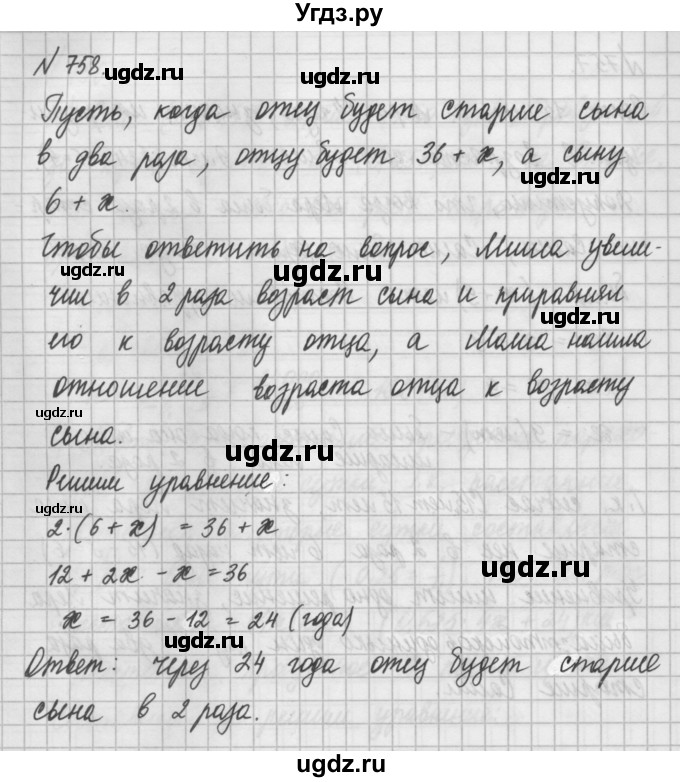 Угдз.ру
N 758.
ugdz.ru
ugdz.ru
Пусть, когда отец будет старше сына
в два раза, отцу будет 36 + x, а сыну
ugdz.ru
6 + x.
Чтобы ответить на вопрос, Миша увели-
ugdz.ru
ugdz.ru
чил в 2 раза возраст сына и приравнял
ugdz.ru
его к возрасту отца, а Маша нашла
отношение возраста отца к возрасту
ugdz.ru
сына.
ugdz.ru
Решим уравнение:
2·(6 + x) = 36 + x
12 + 2x - x = 36
ugdz.ru
x = 36 - 12 = 24 (года)
ugdz.ru
Ответ: через 24 года отец будет старше
сына в 2 раза.
ugdz.ru
ugdz.ru